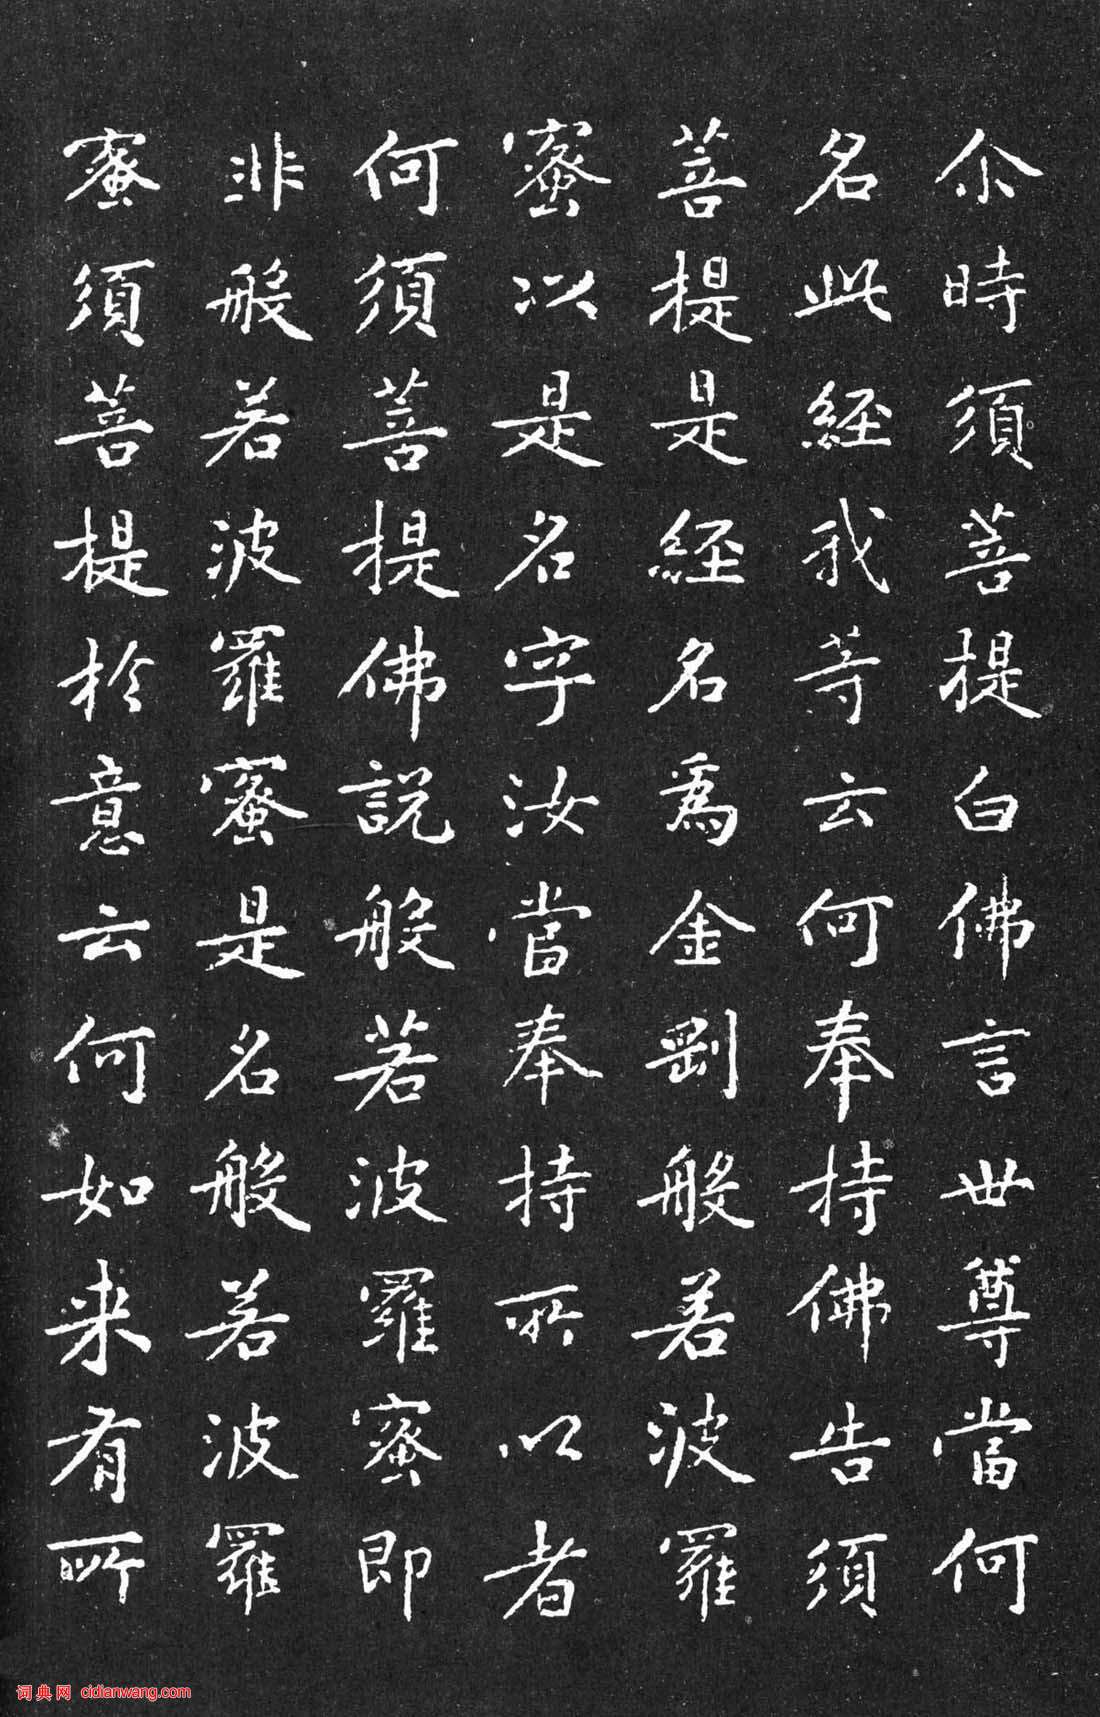 尒時須菩提白佛言世尊當何
名此經我等云何奉持佛告須
菩提是經名為金剛般若波羅
蜜以是名字汝當奉持所以者
何須菩提佛說般若波羅蜜即
非般若波羅蜜是名般若波羅
蜜須菩提於意云何如来有所
词典网 cidianwang.com